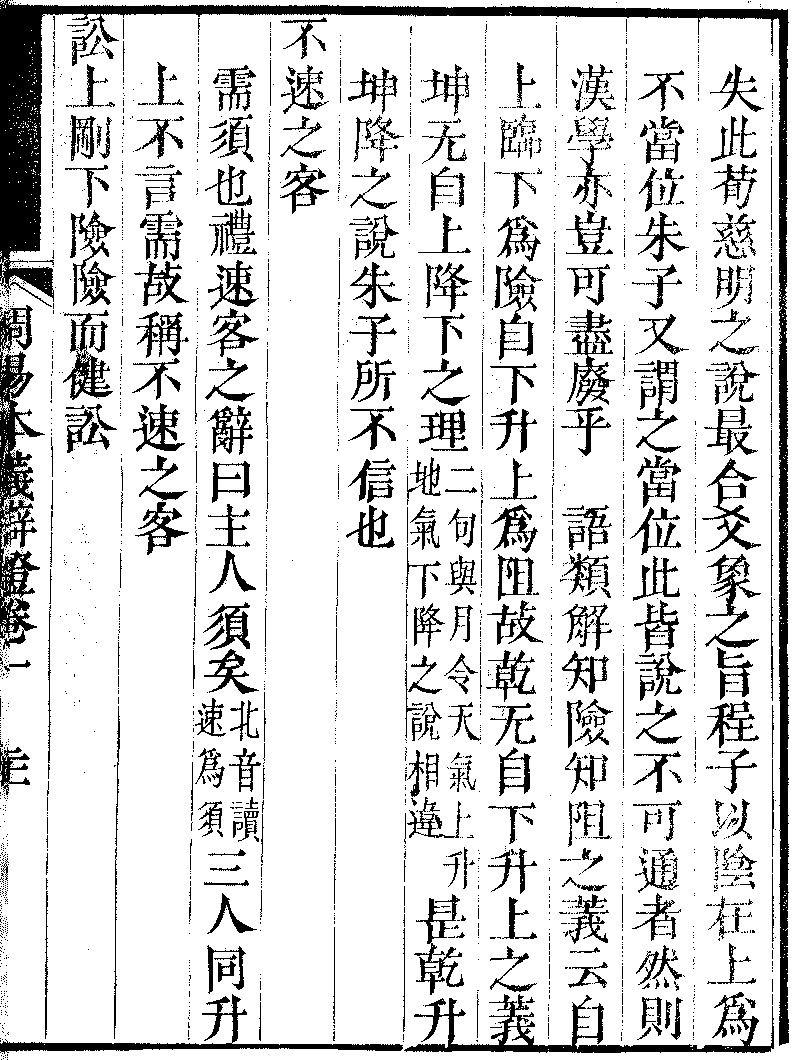 失此荀慈明之說最合爻象之旨程子以陰在上爲
不當位朱子又謂之當位此皆說之不可通者然則
漢學亦豈可盡廢乎　語類解知險知阻之義云自
上臨下爲險自下升上爲阻故乾无自下升上之義
坤无自上降下之理二句與月令天氣上升地氣下降之說相違是乾升
坤降之說朱子所不信也
不速之客
需須也禮速客之辭曰主人須矣北音讀速爲須三人同升
上不言需故稱不速之客
訟上剛下險險而健訟
周易本義辯證卷一